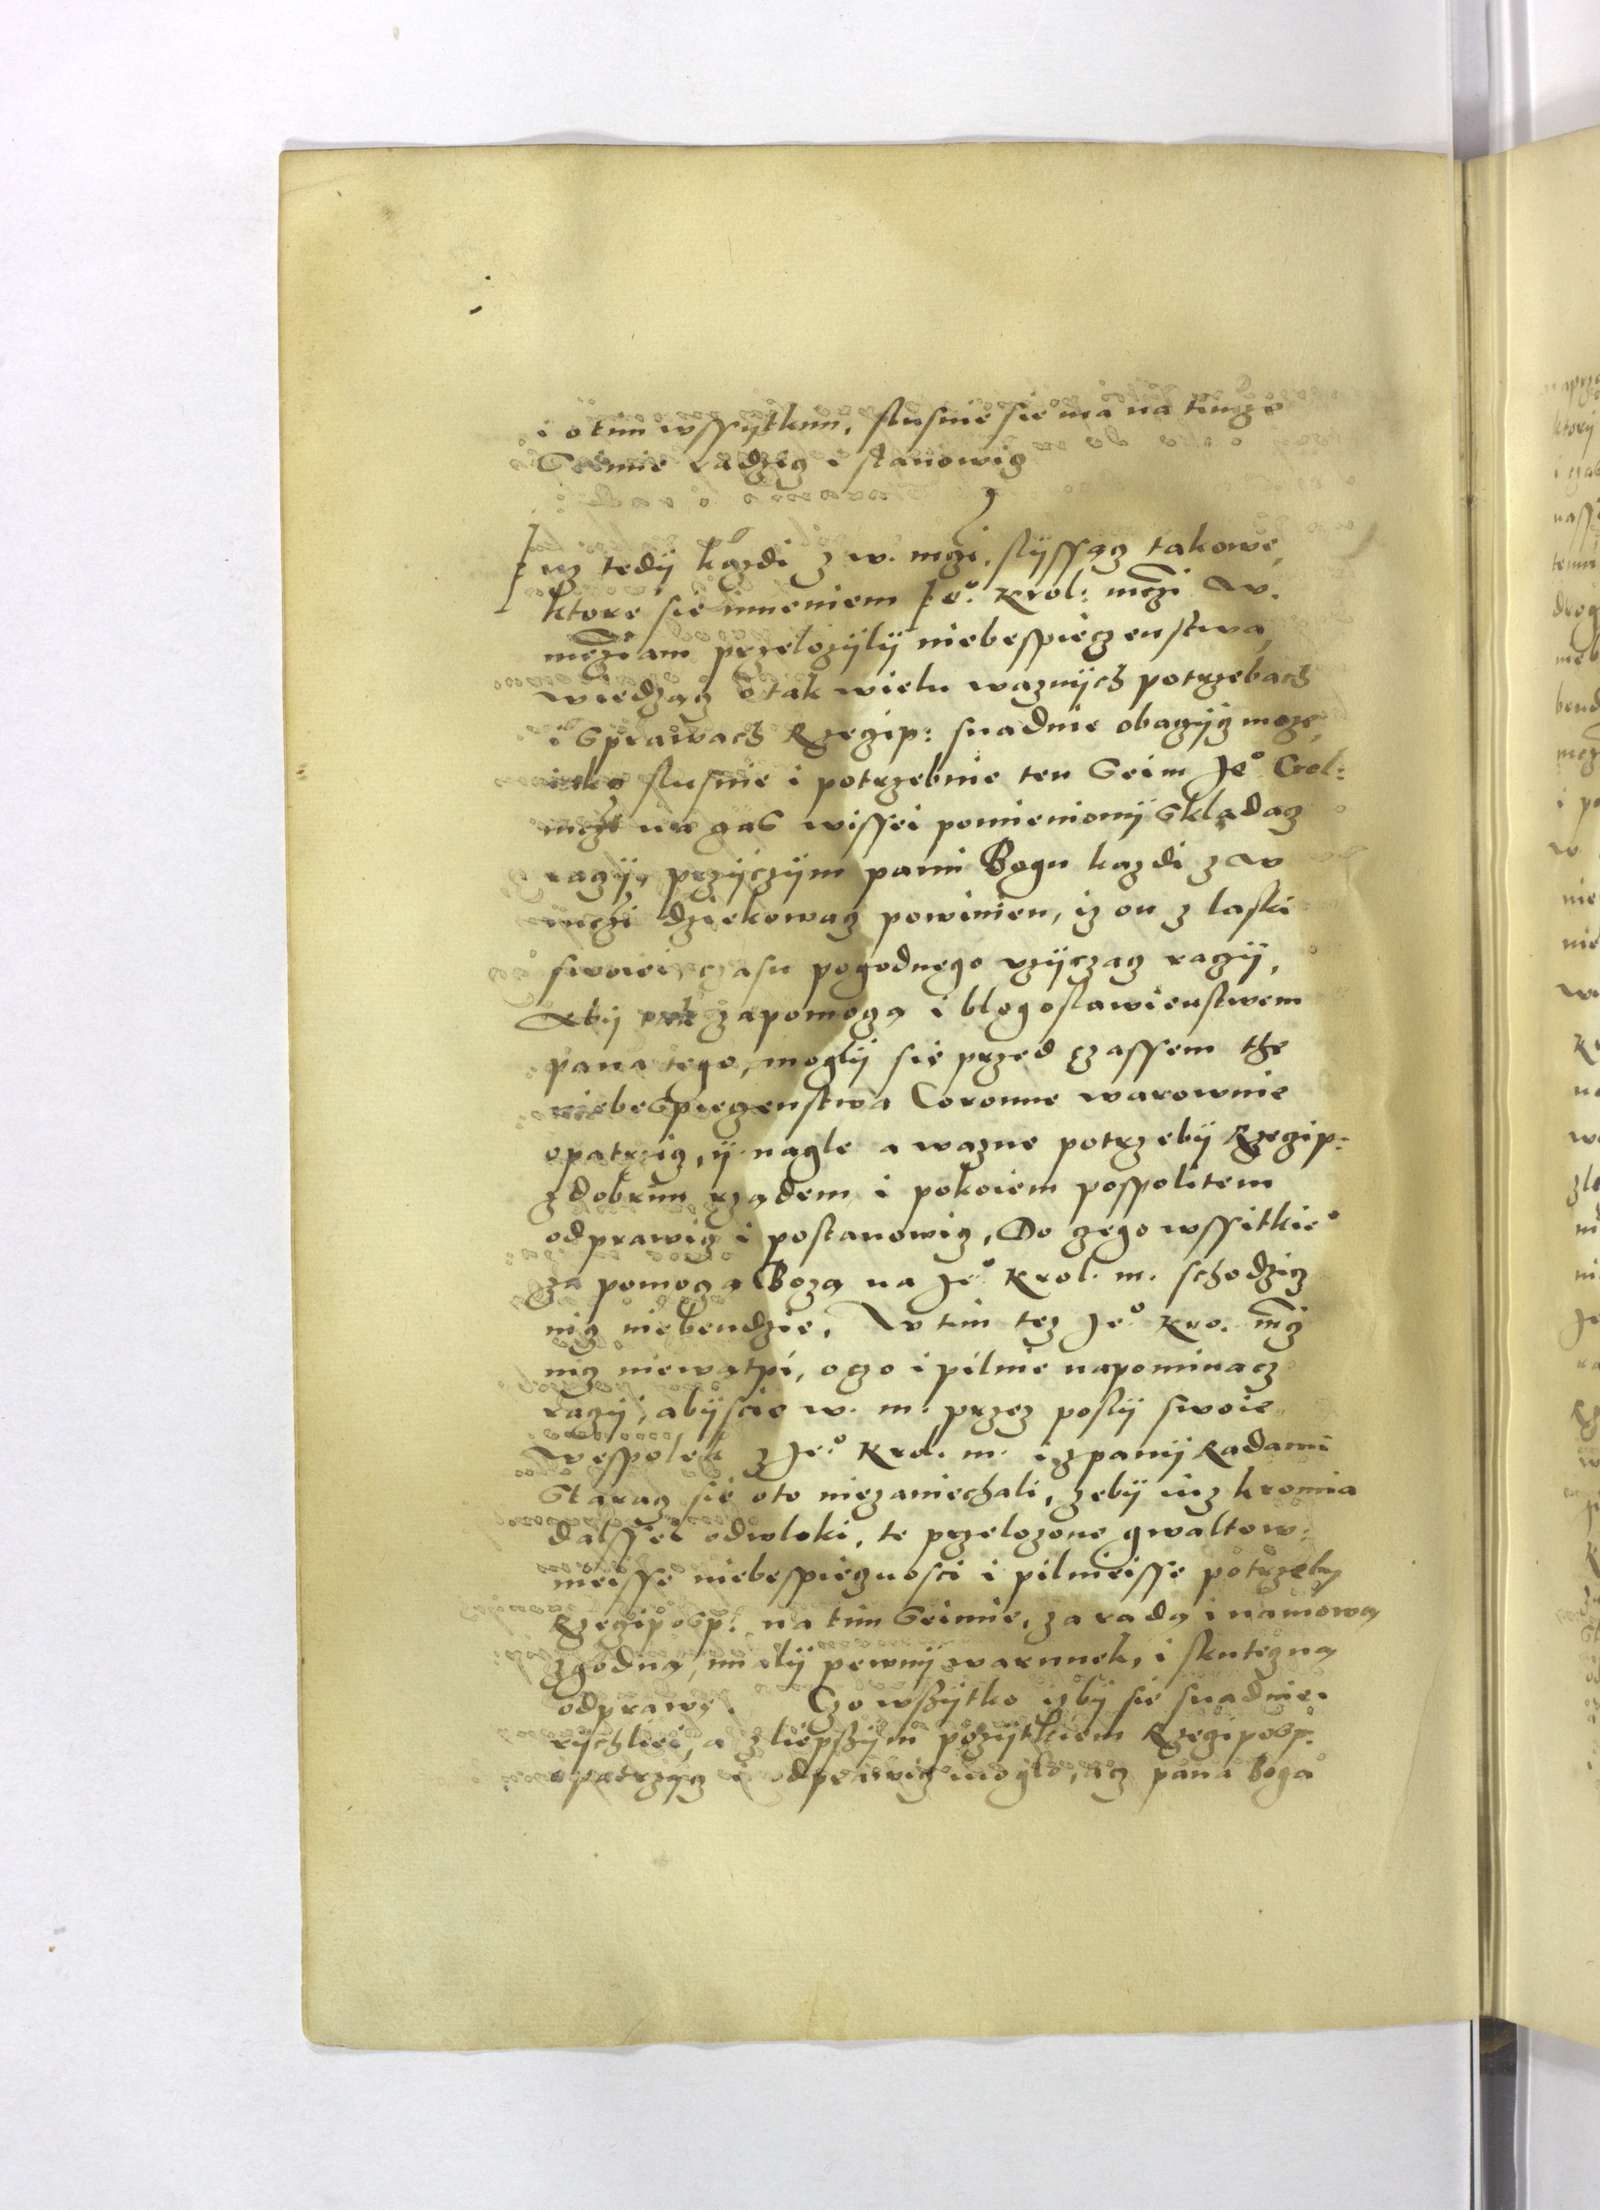 i o tim wssytkim, slusnie sie ma na timze
Seimie radzicz i stanowicz
Juz tedÿ kazdi z w. mczi, slÿssącz takowe,
ktore sie imieniem Je° Krol: mczi W.
mcziam przelozÿlÿ niebespieczenstwa,
wiedzącz o tak wielu waznÿch potrzebach
i Sprawach Rzeczip: snadnie obaczÿcz moze,
iako slusnie i potrzebnie ten Seim Je° Crol:
mczi na czaS wissei pomienionÿ Skladacz
raczÿ, przÿczÿm panu Bogu kazdi z W
mczi dziekowacz powinien, iz on z laski
swoiei, czasu pogodnego vzÿczacz raczÿ,
Abÿ za pomoczą i blogoslawienstwem
pana tego, moglÿ sie przed czassem the
niebeSpieczenstwa Coronne warownie
opatrzicz, ÿ nagle a wazne potrzebÿ Rzeczip:
z dobrim rządem i pokoiem pospolitem
odprawicz i postanowicz, Do czego wssitkie°
za pomoczą Bozą na Je° Krol. m. schodzicz
nicz niebendzie, W tim tez Je° Kro. mcz
nicz niewątpi, oczo i pilnie napominacz
raczÿ, abÿscie w. m. przez poslÿ swoie
wespolek z Je° Krol. m. i z panÿ Radami
Staracz sie oto niezaniechali, zebÿ iuz kromia
dalssei odwloki, te przelozone gwaltow:
nieisse niebespiecznosci i pilnieisse potrzebÿ
RzeczipoSp: na tim Seimie, za radą i namową
zgodną, mialÿ pewnÿ warunek, i skuteczną
odprawę. Czo wszÿtko izbÿ sie snadnie.
rÿchliei, a z liepszÿm pozÿtkiem RzeczipoSp:
opatrzÿcz i odprawicz moglo, acz pana Boga